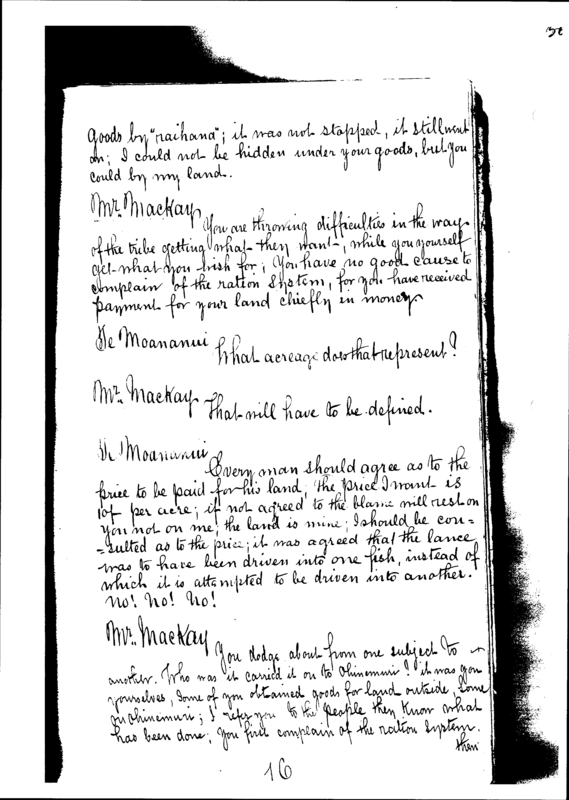 goods by "raihana"; it was not stopped, it still went
on; I could not be hidden under your goods, but you
could by my land.
Mr. Mackay
You are throwing difficulties in the way
of the tribe getting what they want, while you yourself
get what you wish for; You have no good cause to
complain of the ration System, for you have received
payment for your land chiefly in money
Te Moananui
What acreage does that represent?
Mr. Mackay
That will have to be defined.
Te Moananui
Every man should agree as to the
price to be paid for his land, the price I want is
10/- per acre; if not agreed to the blame will rest on
you not on me, the land is mine; I should be con=
=sulted as to the price; it was agreed that the lance
was to have been driven into one fish, instead of
which it is attempted to be driven into another.
No! No! No!
Mr. Mackay
You dodge about from one subject to
another. Who was it carried it on to Ohinemuri? it was you
yourselves, Some of you obtained goods for land outside, Some
on Ohinemuri; I refer you to the people they know what
has been done; You first complain of the ration System.
then
16